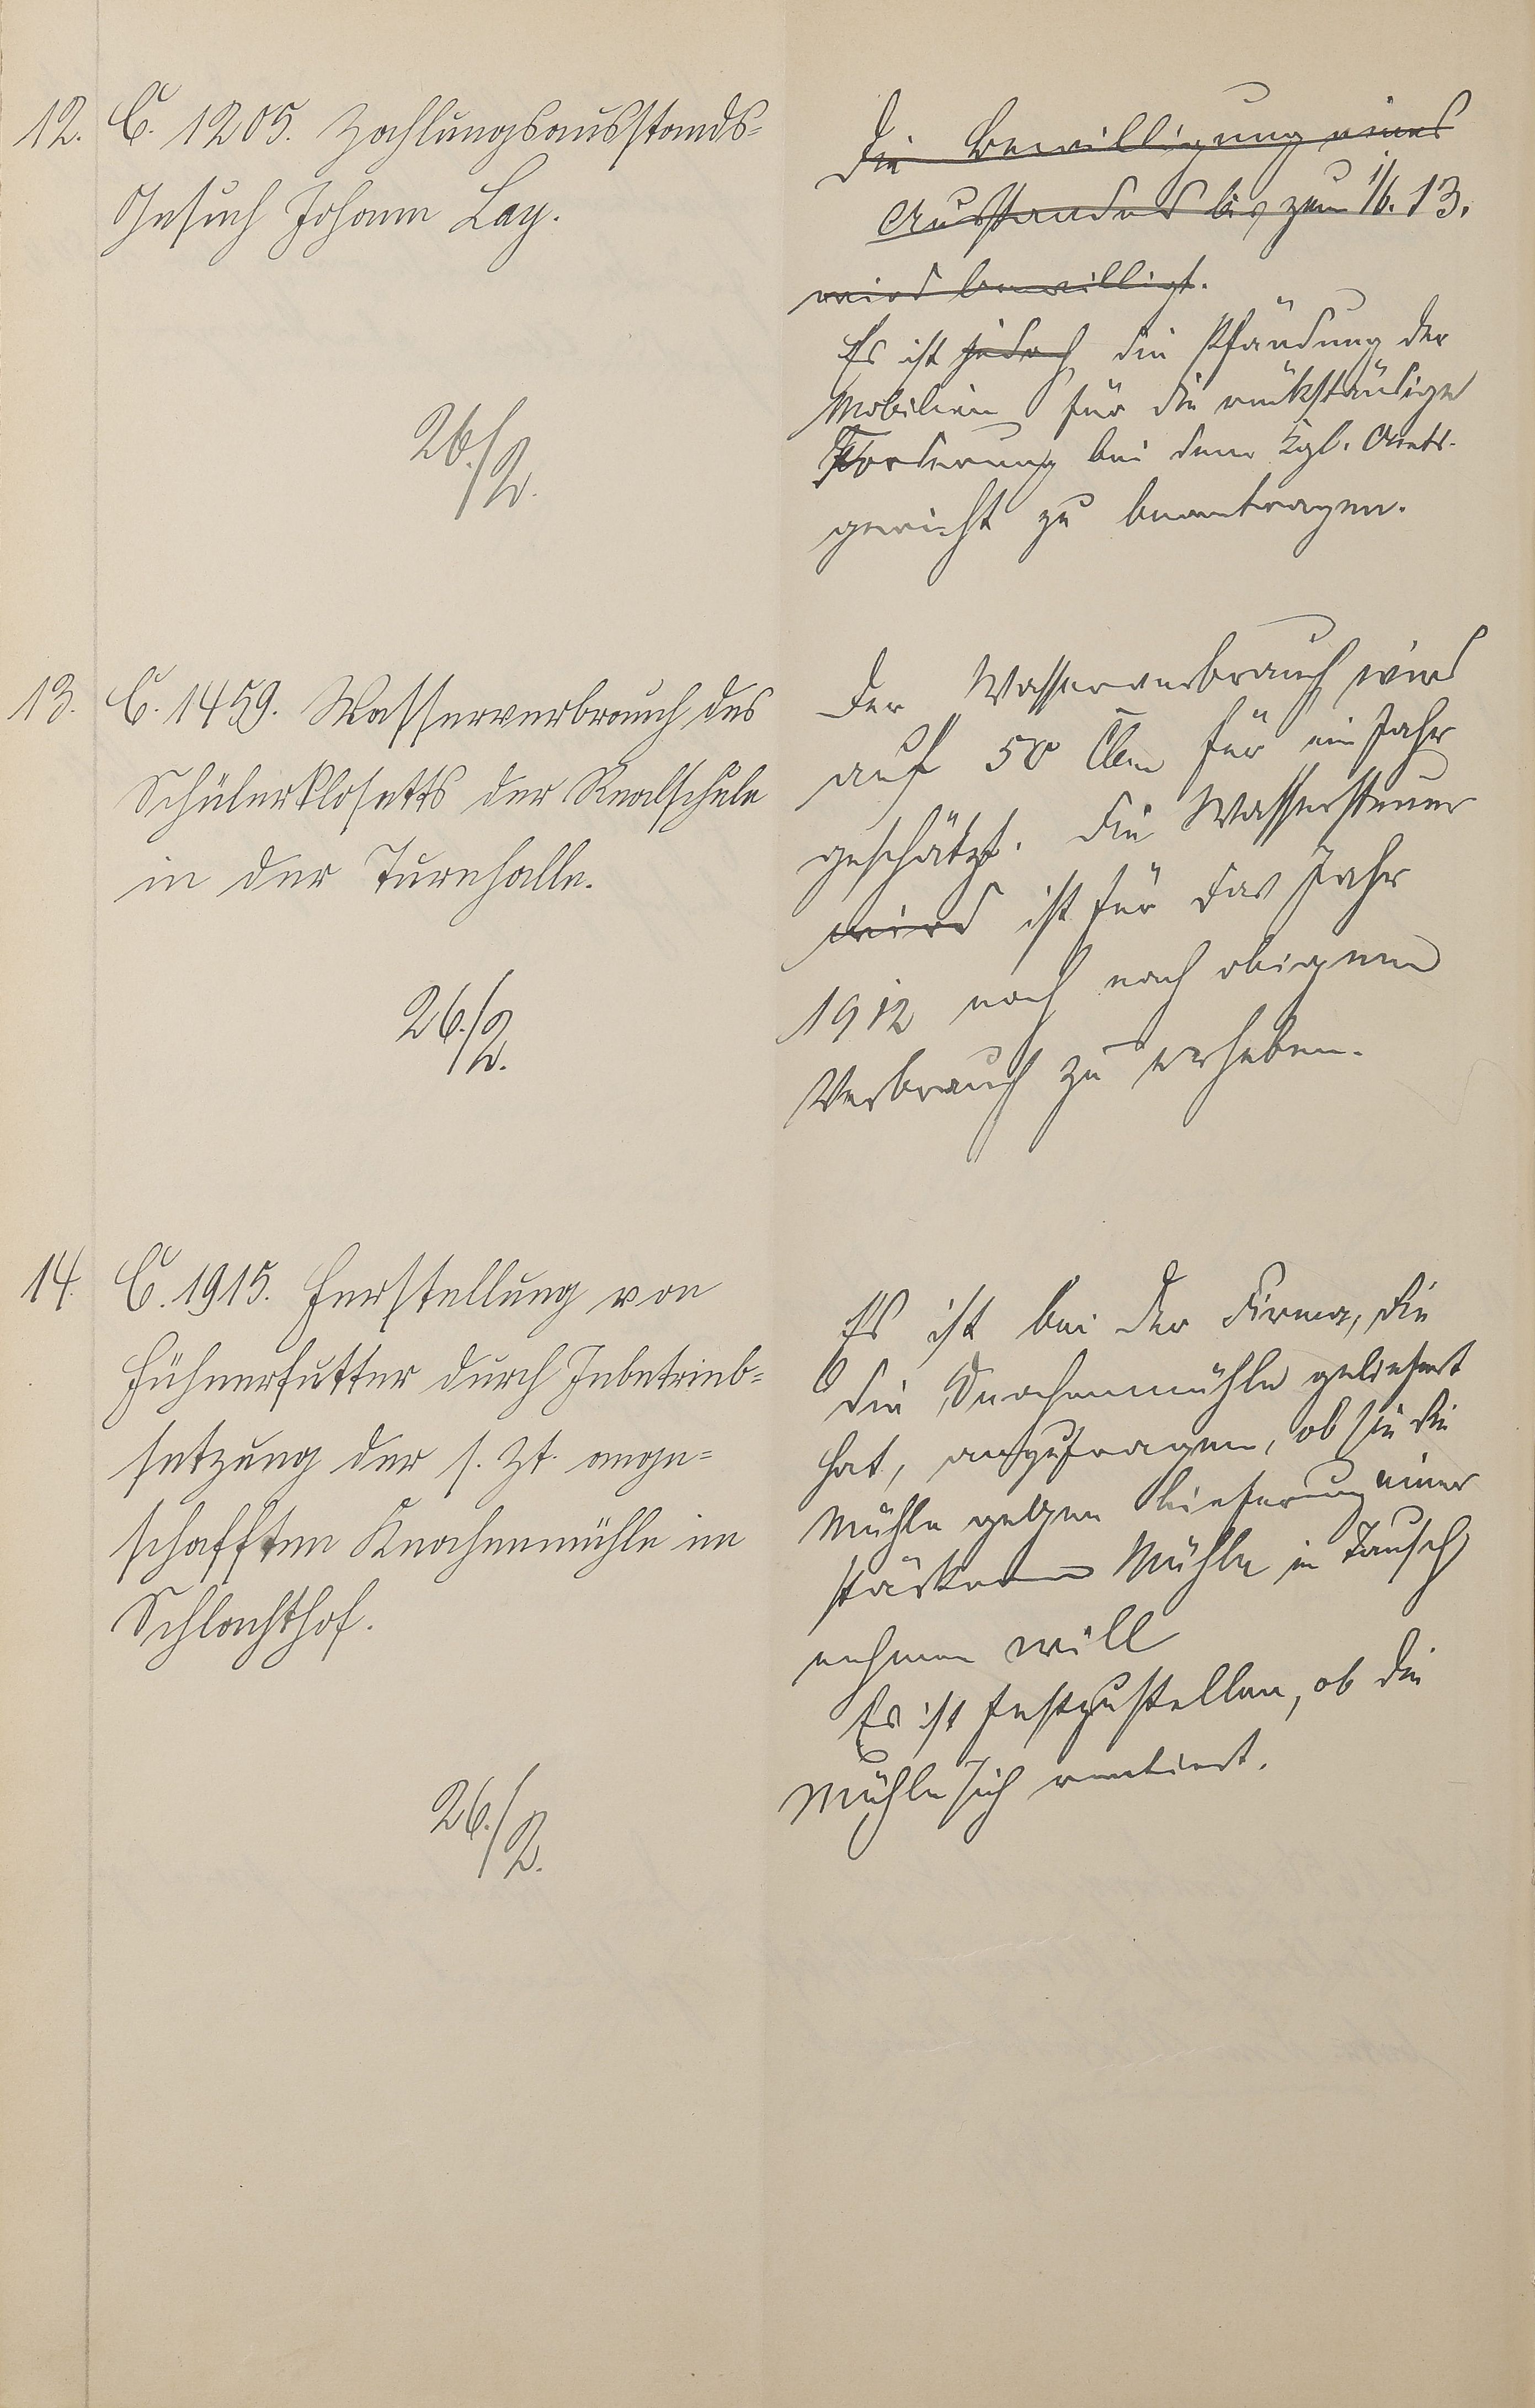 12. C. 1205. Zahlungsausstands-
Gesuch Johann Lay.
26./2.
Die Bewilligung eines
Ausstandes bis zum 1/6. 13.
wird bewilligt.
Es ist jedoch die Pfändung der
Mobilien für die rückständige
Forderung bei dem Kgl. Amts-
gericht zu beantragen.
13. C. 1459. Wasserverbrauch des
Schülerklosetts der Realschule
in der Turnhalle.
26./2.
Der Wasserverbrauch wird
auf 50 Cbm für ein Jahr
geschätzt. Die Wassersteuer
wird ist für das Jahr
1912 noch nach obigem
Verbrauch zu erheben.
14. C. 1915. Herstellung von
Hühnerfutter durch Inbetrieb-
setzung der s. Zt. ange-
schafften Knochenmühle im
Schlachthof.
26./2.
Es ist bei der Firma, die
die Knochenmühle geliefert
hat, anzufragen, ob sie die
Mühle gegen Lieferung einer
stärkeren Mühle in Tausch
nehmen will
Es ist festzustellen, ob die
Mühle sich rentiert.